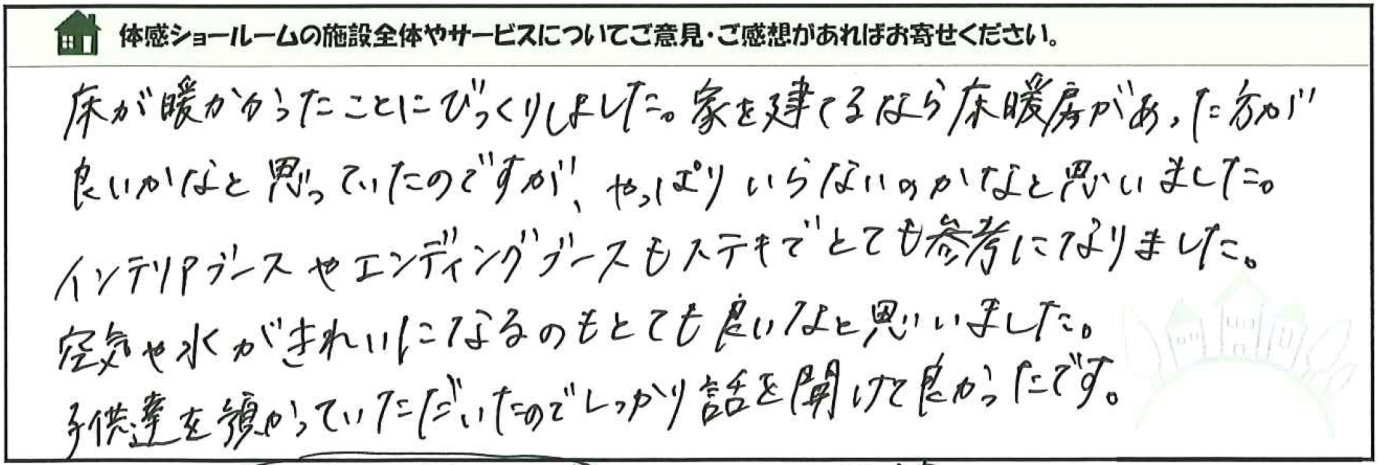 体感ショールームの施設全体やサービスについてご意見・ご感想があればお寄せください。
床が暖かかったことにびっくりしました。家を建てるなら床暖房があった方が
良いかなと思っていたのですが、やっぱりいらないのかなと思いました。
インテリアブースやエンディングブースもステキでとても参考になりました。
空気や水がきれいになるのもとても良いなと思いいました。
子供達を預かっていただいたのでしっかり話を聞けて良かったです。